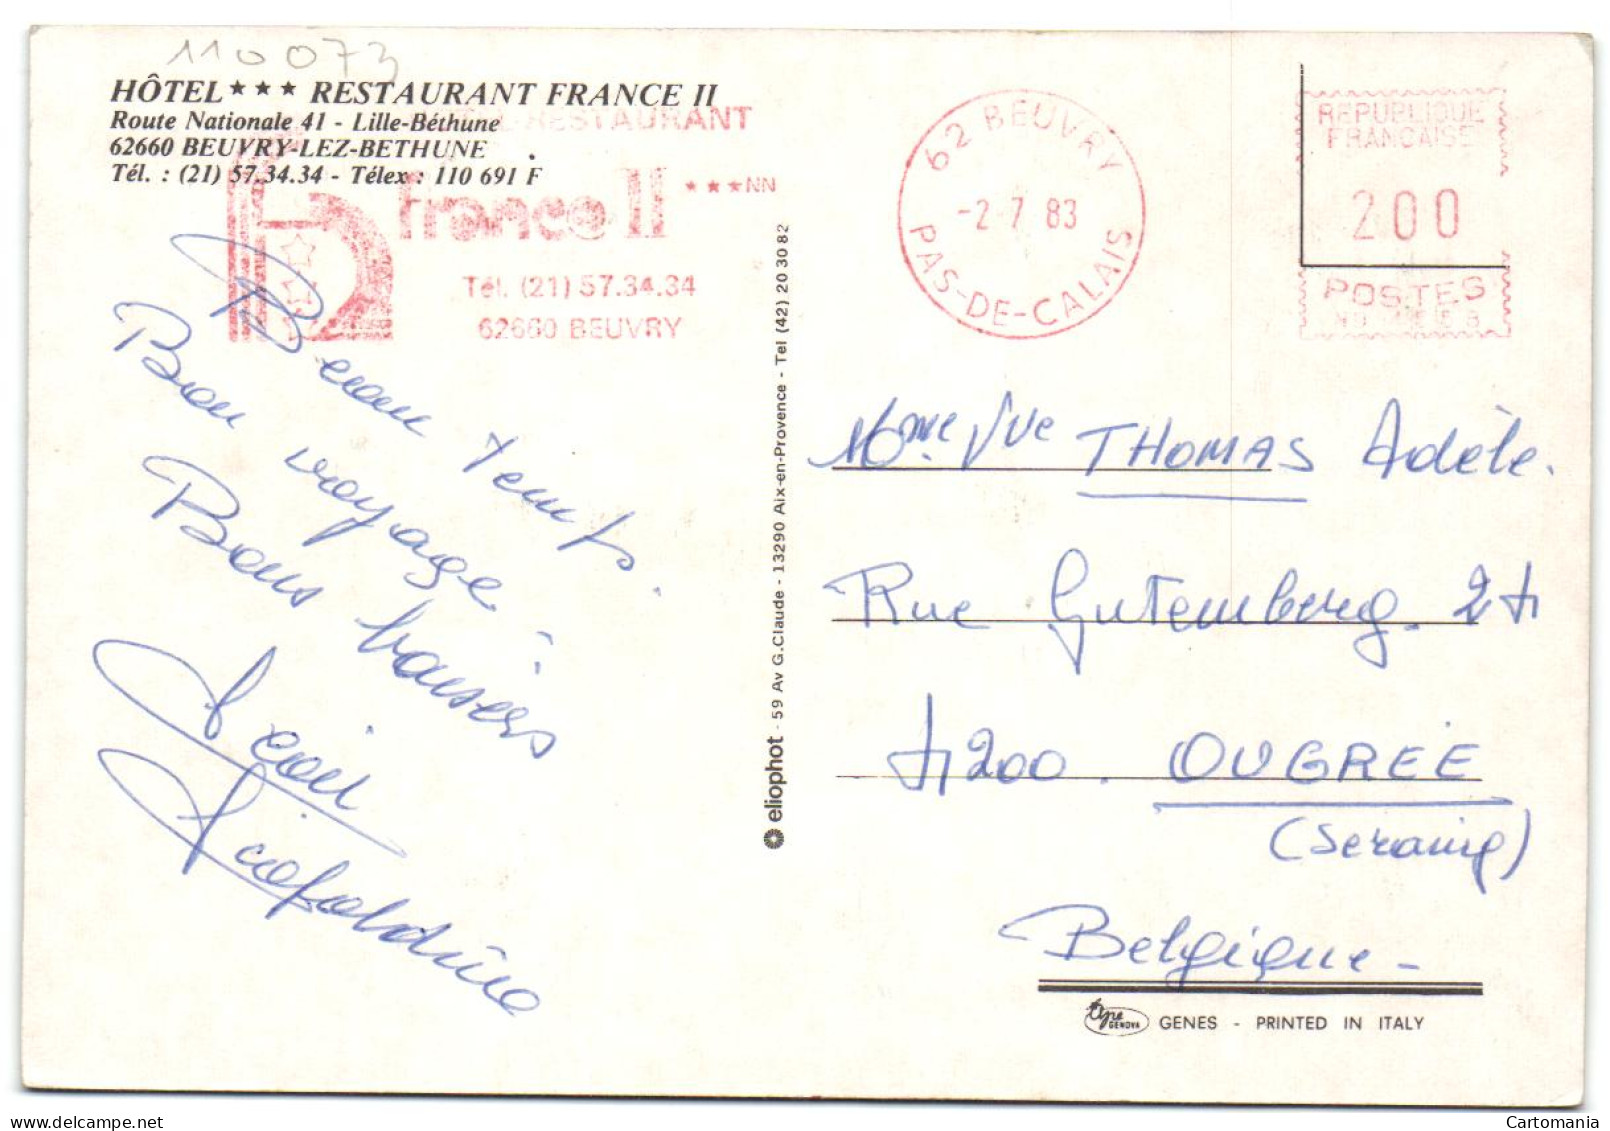 110073
HÔTEL ★★★ RESTAURANT FRANCE II
Route Nationale 41 - Lille-Béthune
62660 BEUVRY-LEZ-BETHUNE
Tél. : (21) 57.34.34 - Télex : 110 691 F
RESTAURANT
france II ★★★NN
Tél. (21) 57.34.34
62660 BEUVRY
62 BEUVRY
-2 7 83
PAS-DE-CALAIS
REPUBLIQUE
FRANCAISE
200
POSTES
Beau temps.
Bon voyage
Bons baisers
eliophot - 59 Av G.Claude - 13290 Aix-en-Provence - Tel (42) 20 30 82
Mme Vve THOMAS Adèle.
Rue Gutemberg. 24
4200. OUGREE
(Seraing)
Belgique-
type GENOVA GENES - PRINTED IN ITALY
Cartomania